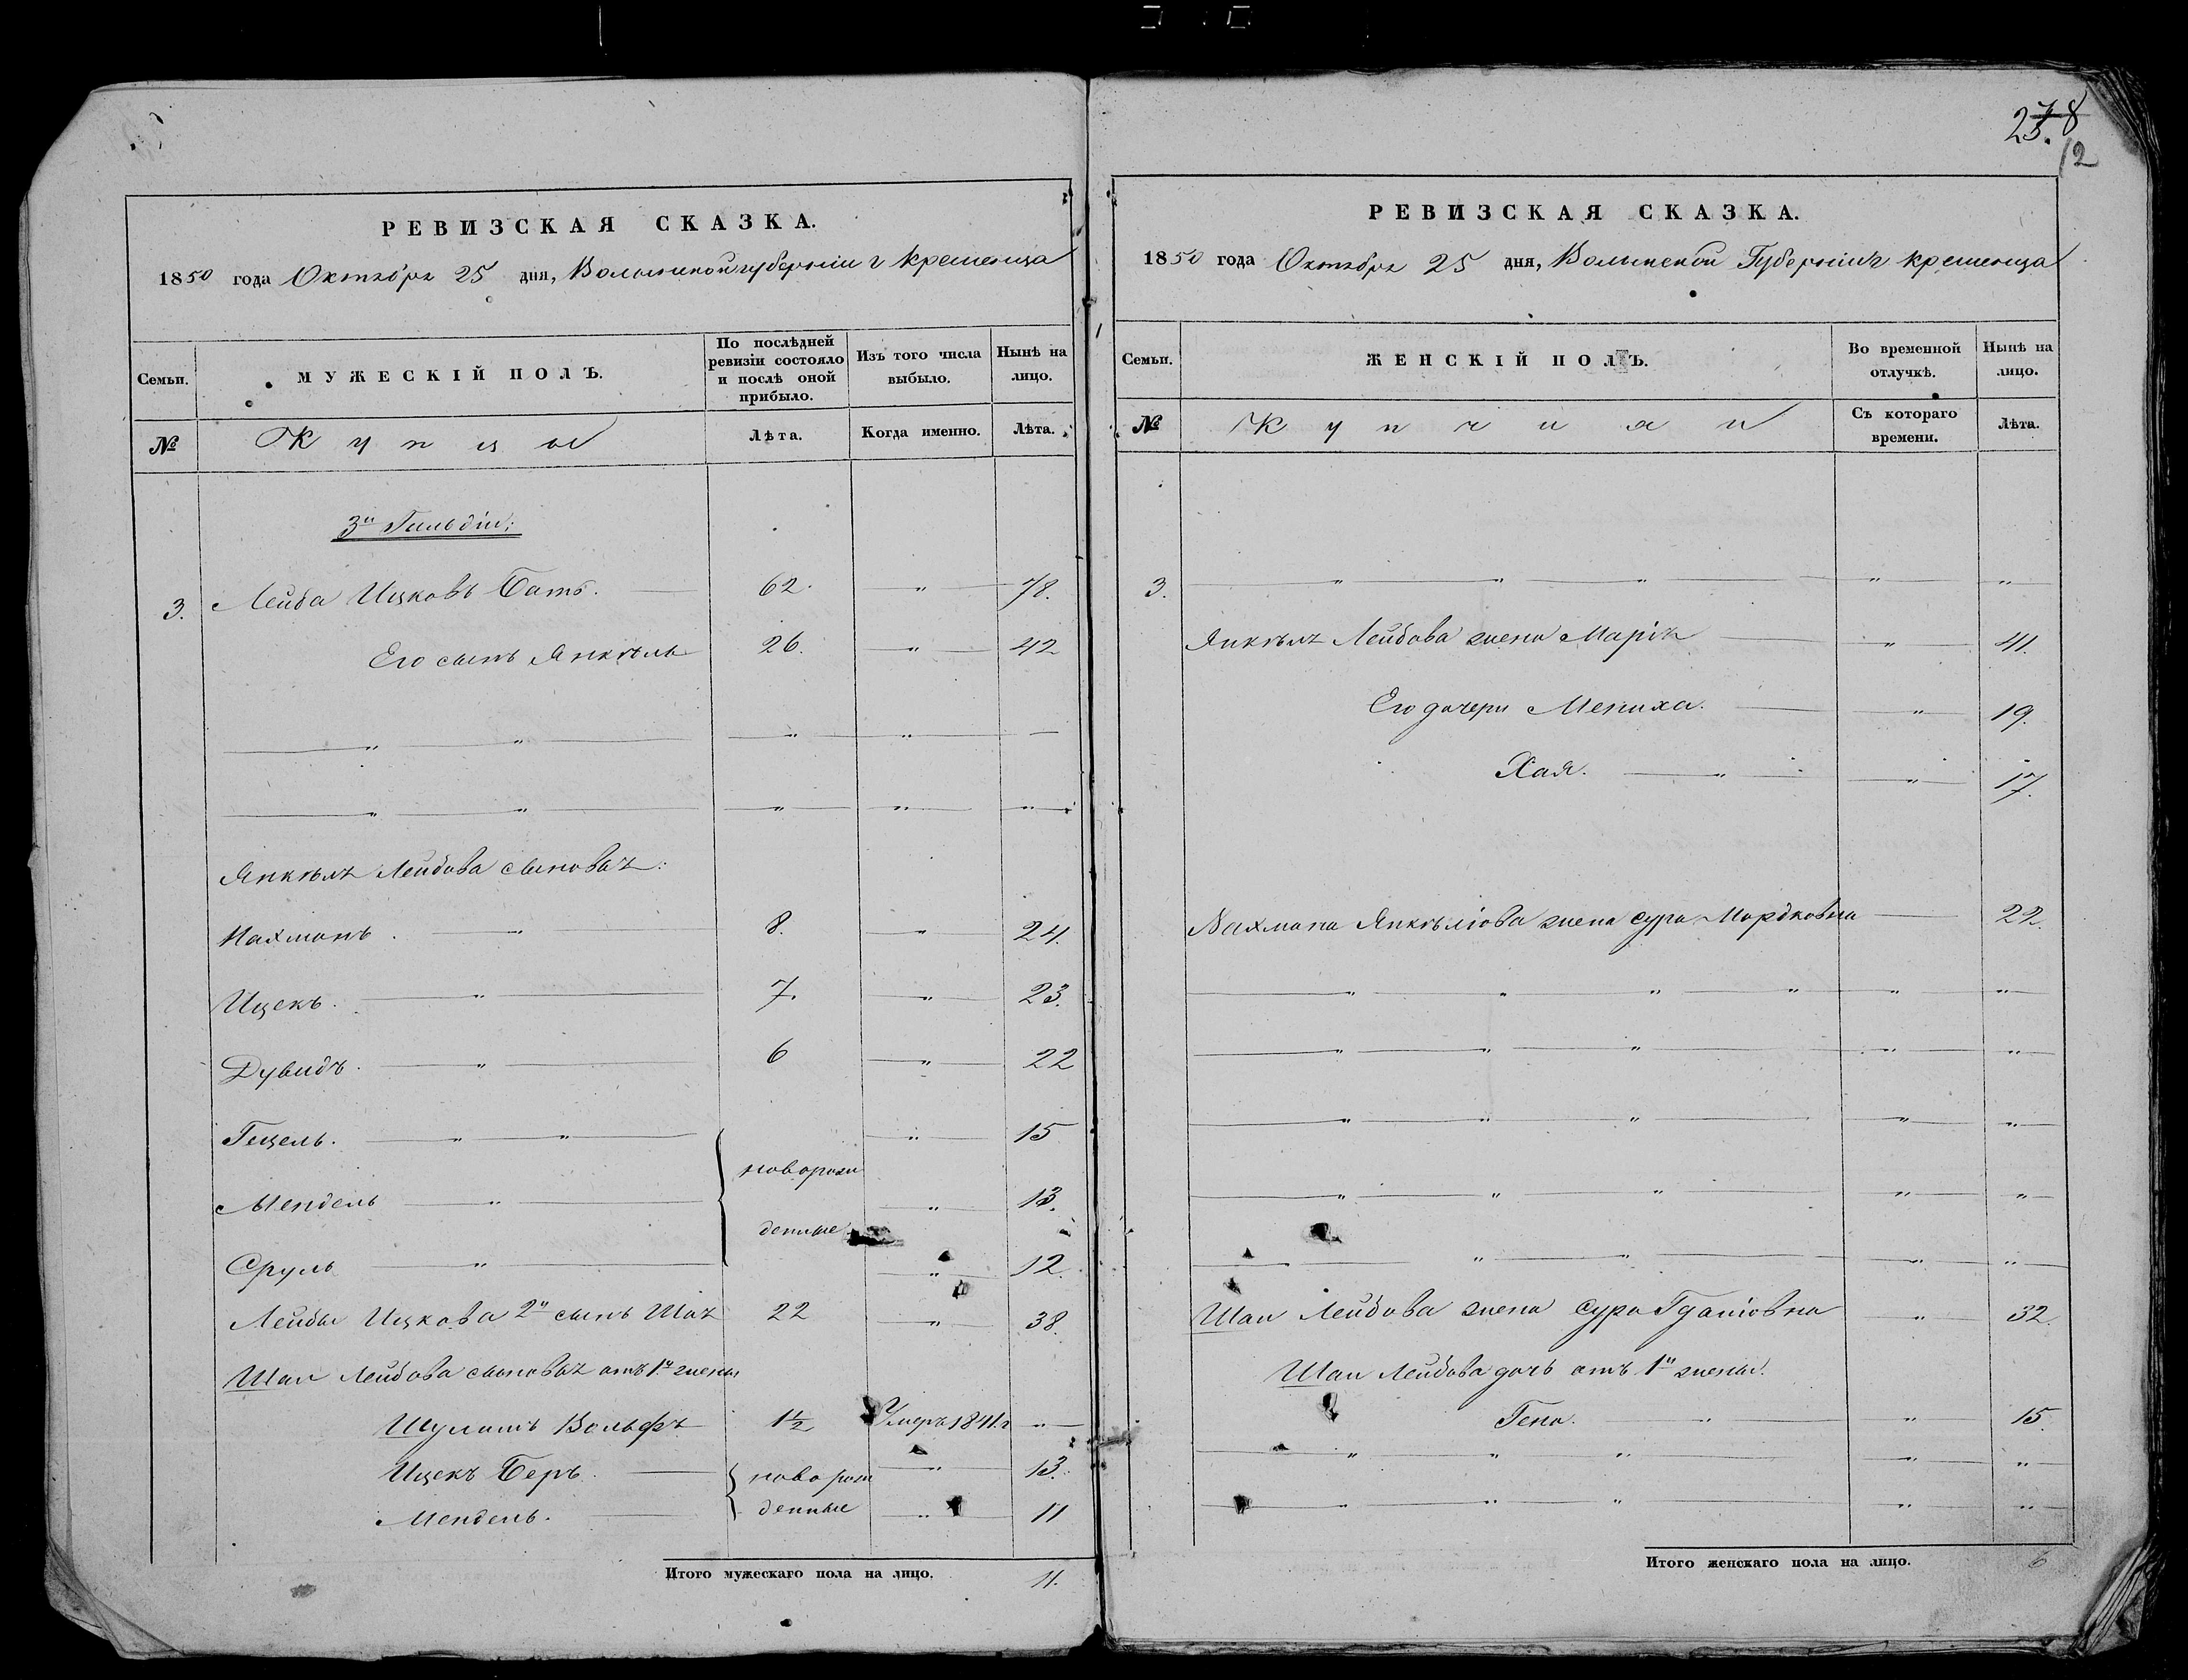 РЕВИЗСКАЯ СКАЗКА.
1850 года Октября 25 дня, Волынской губернии г Кременца
Семьи. МУЖЕСКІЙ ПОЛЪ. По послѣдней ревизіи состояло и послѣ оной прибыло. Изъ того числа выбыло. Нынѣ на лицо.
№ Купцы Лѣта. Когда именно. Лѣта.
3й Гильдіи:
3. Лейба Ицковъ Батъ. 62. " 78.
Его сынъ Янкель 26. " 42
" " " " —
" " " " "
Янкеля Лейбова сыновья:
Нахманъ. " 8. " 24.
Ицекъ. " 7. " 23.
Дувидъ. " 6 " 22
Гецель. " " " 15
новорож
Мендель " " 13.
денные
Сруль " " 12.
Лейбы Ицкова 2й сынъ Шая 22 " 38.
Шаи Лейбова сыновья отъ 1й жены
Вольфъ 1½ Умеръ 1841 г "
Ицекъ Беръ. новорож " 13.
Мендель. денные " 11
Итого мужескаго пола на лицо. 11.
8
12
РЕВИЗСКАЯ СКАЗКА.
1850 года Октября 25 дня, Волынской Губерніи г Кременца
Семьи. ЖЕНСКІЙ ПОЛЪ. Во временной отлучкѣ. Нынѣ на лицо.
№ Купчихи Съ котораго времени. Лѣта.
3. " " " " "
Янкеля Лейбова жена Марія " 41.
Его дочери Мениха. " 19.
Хая. " " 17.
Нахмана Янкелева жена Сура Мордковна 22.
" " " " " "
" " " " "
" " " " "
" " " " "
" " " "
Шаи Лейбова жена Сура " 32.
Шаи Лейбова дочь отъ 1й жены.
Гена. " " 15.
" " " " "
" " " " "
Итого женскаго пола на лицо. 6